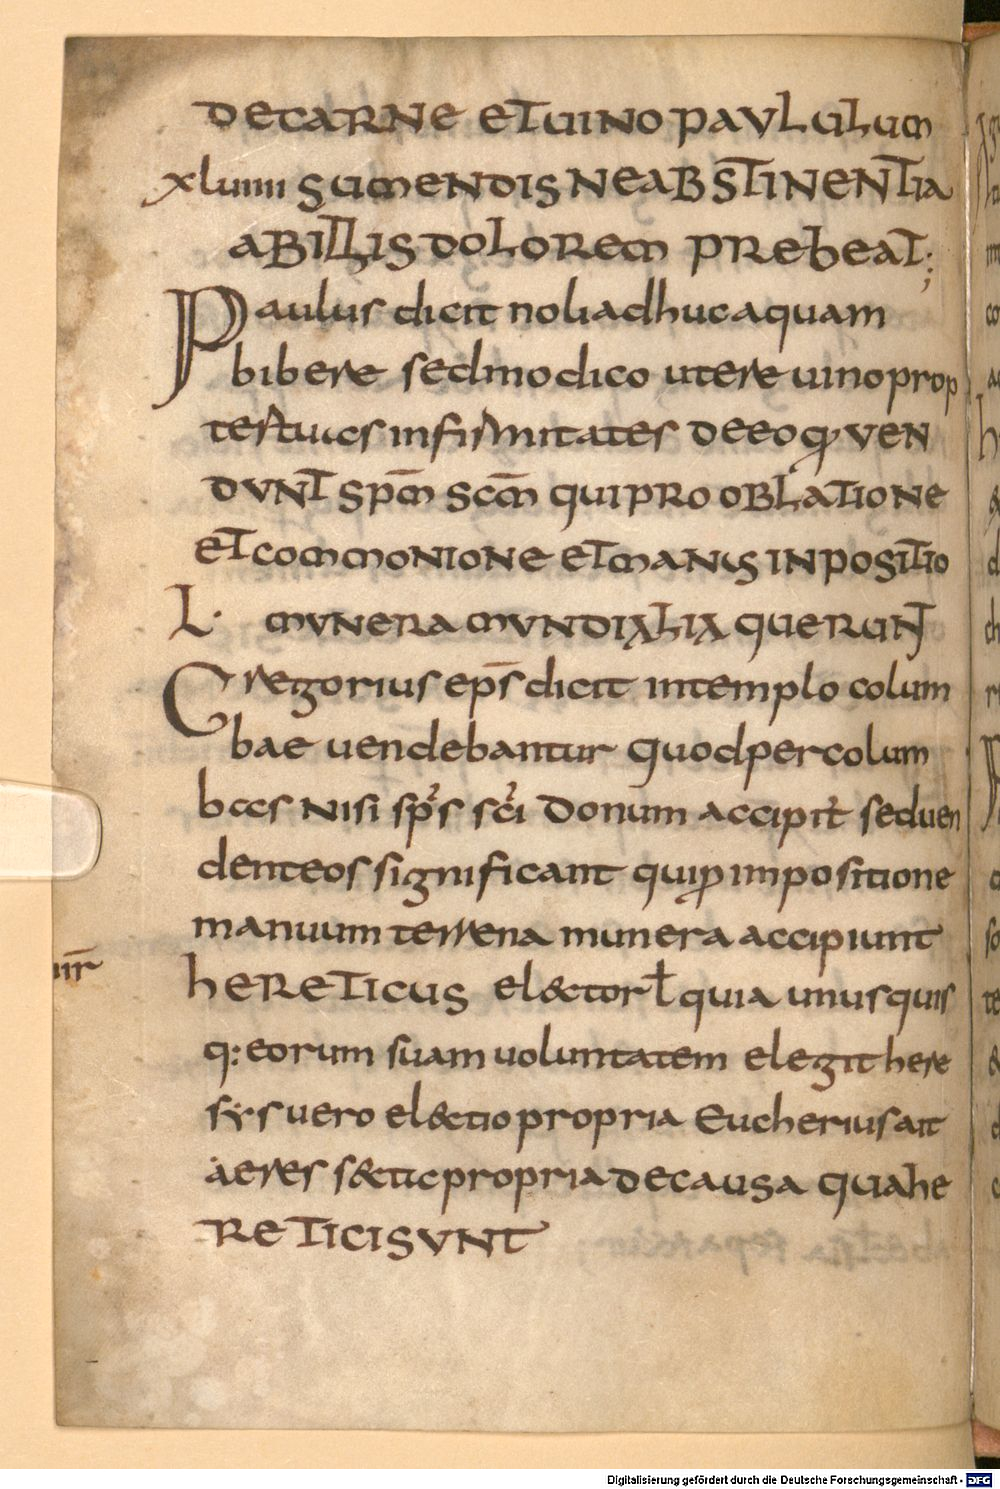 DECARNE ET UINO PAVLULUM
xluiiii SUMENDIS NE ABSTINENTIA
ABILLIS DOLOREM PREBEAT;
Paulus dicit noli adhuc aquam
bibere sed modico utere uino prop
ter tuas infirmitates DE EO Q VEN
DVNT SPM̄ SCM̄ QUI PRO OBLATIONE
ET COMMONIONE ET MANIS INPOSITIO
L· MVNERA MVNDIALIA QUERUNT
Gregorius ep̄s dicit in templo colum
bae uendebantur quod per colum
bas nisi sp̄s sc̄i donum accipit seduen
denteos significant quiꝓ impositione
manuum terrena munera accipiunt
iir̄
HERETICUS el&tor ł quia unusquis
q: eorum suam uoluntatem elegit here
sys uero el&tio propria Eucherius ait
aeres s&ta propria DE CAUSA QUA HE
RETICI SVNT
Digitalisierung gefördert durch die Deutsche Forschungsgemeinschaft - DFG